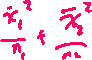 x̄₁²/n₁ + x̄₂²/n₂